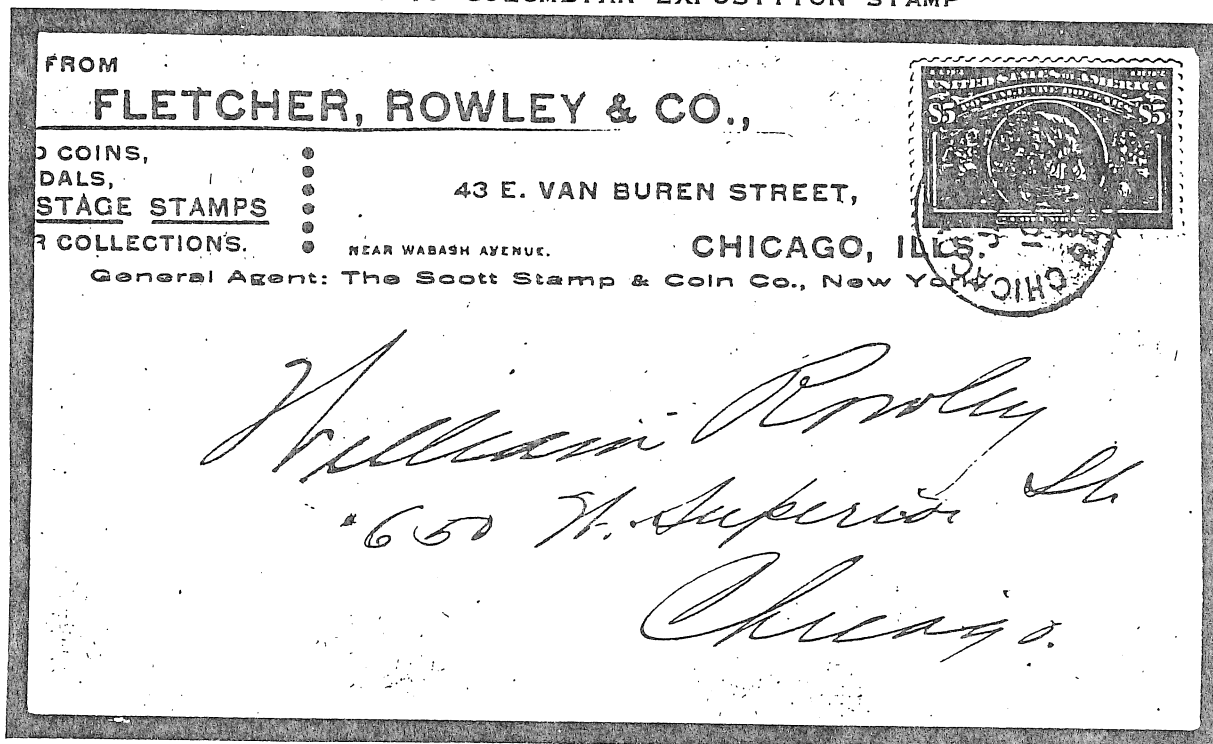 COLUMBIAN EXPOSITION STAMP
FROM
FLETCHER, ROWLEY & CO.,
COINS,
DALS,
STAGE STAMPS
R COLLECTIONS.
43 E. VAN BUREN STREET,
NEAR WABASH AVENUE.
CHICAGO, ILLS.
General Agent: The Scott Stamp & Coin Co., New York
UNITED STATES OF AMERICA
$5 $5
CHICAGO
William Rowley
650 W. Superior St
Chicago.